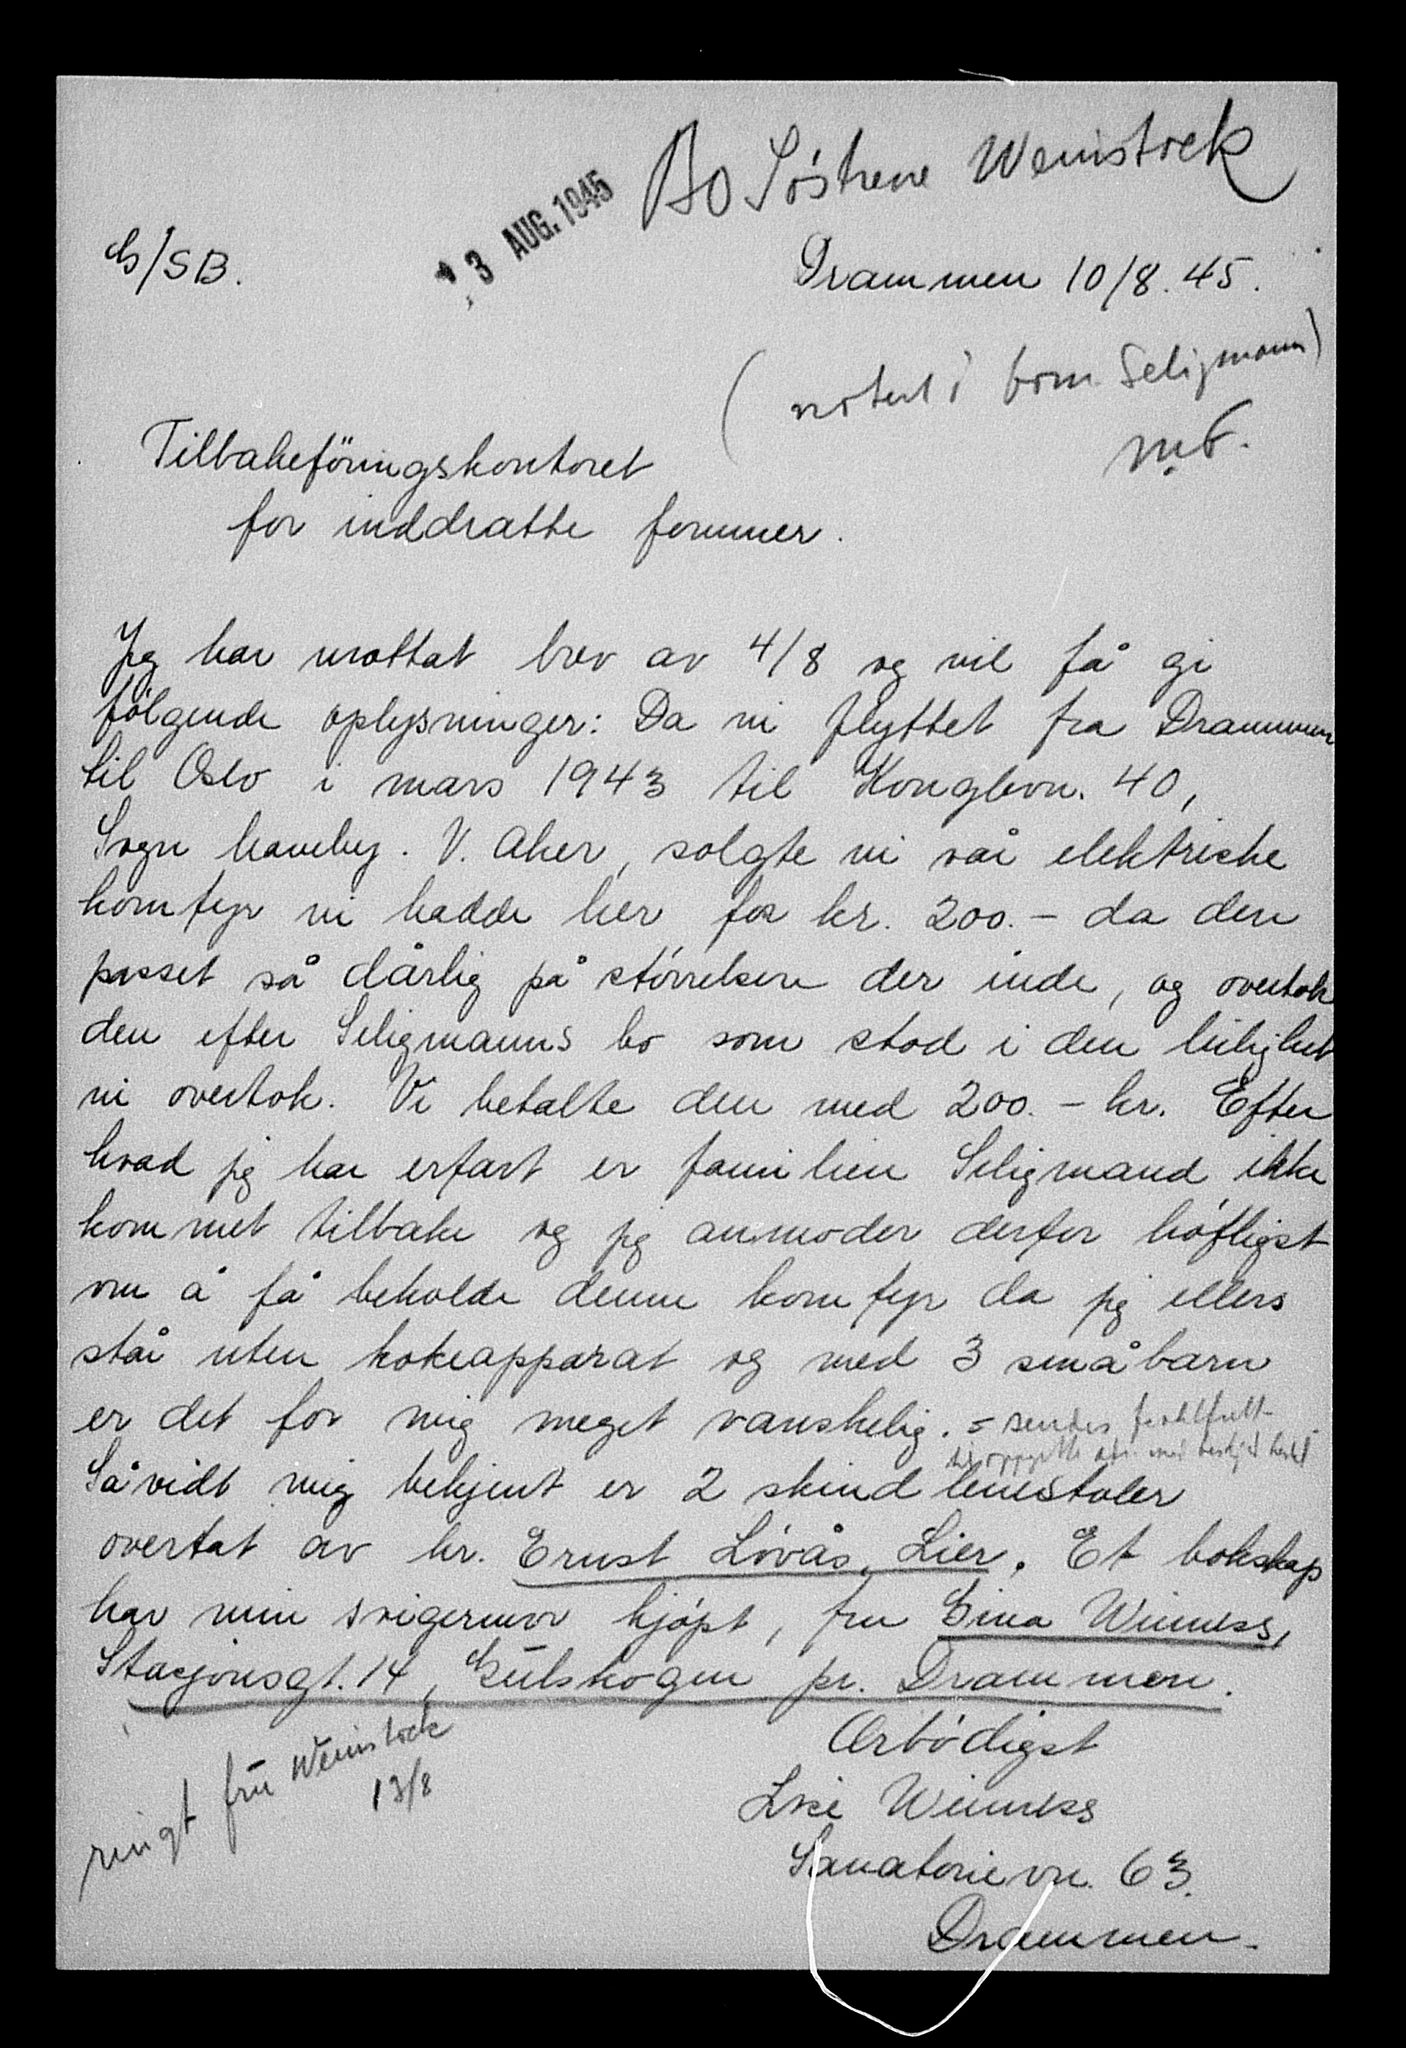 Bo Søstrene Weinstock
13 AUG. 1945
G/SB.
Drammen 10/8. 45.
(notert i bom Seligmann)
Tilbakeföringskontoret
for inddratte formuer.
Jeg har mottat brev av 4/8 og vil få gi
følgende oplysninger: Da vi flyttet fra Drammen
til Oslo i mars 1943 til Konglevn. 40,
Sogn haveby. V. Aker, solgte vi vår elektriske
komfyr vi hadde her for kr. 200.- da den
passet så dårlig på størrelsen der inde, og overtok
den efter Seligmanns bo som stod i den leilighet
vi overtok. Vi betalte den med 200.- kr. Efter
hvad jeg har erfart er familien Seligmand ikke
kommet tilbake og jeg anmoder derfor høfligst
om å få beholde denne komfyr da jeg ellers
står uten kokeapparat og med 3 småbarn
er det for mig meget vanskelig. = sendes
Såvidt mig bekjent er 2 skind lenestoler
overtat av hr. Ernst Lövås, Lier. Et bokskap
har min svigermor kjøpt, fru Gina Winness,
Stasjonsgt. 14, Gulskogen pr. Drammen.
Ærbödigst
ringt fru Weinstock
13/8
Winness
Sanatorievn. 63.
Drammen.